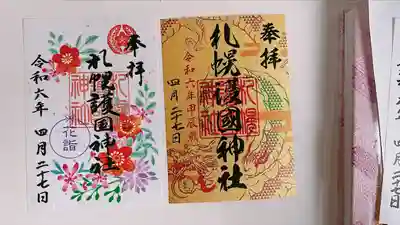 奉拝
札幌護国神社
令和六年 四月二十七日
花詣
奉拝
札幌護國神社
令和六年甲辰
四月二十七日